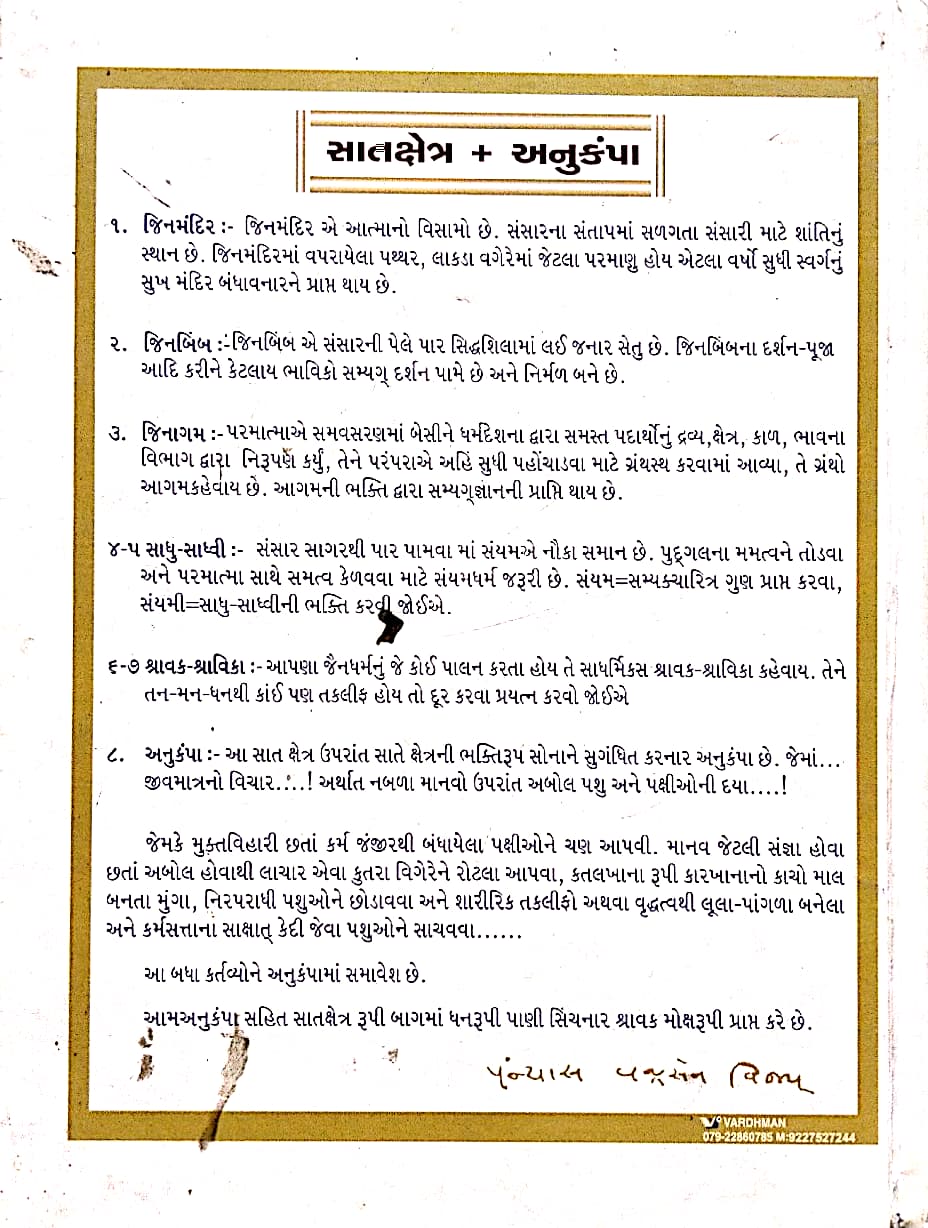 સાતક્ષેત્ર + અનુકંપા
૧. જિનમંદિર :- જિનમંદિર એ આત્માનો વિસામો છે. સંસારના સંતાપમાં સળગતા સંસારી માટે શાંતિનું
સ્થાન છે. જિનમંદિરમાં વપરાયેલા પથ્થર, લાકડા વગેરેમાં જેટલા પરમાણુ હોય એટલા વર્ષો સુધી સ્વર્ગનું
સુખ મંદિર બંધાવનારને પ્રાપ્ત થાય છે.
૨. જિનબિંબ :-જિનબિંબ એ સંસારની પેલે પાર સિદ્ધશિલામાં લઈ જનાર સેતુ છે. જિનબિંબના દર્શન-પૂજા
આદિ કરીને કેટલાય ભાવિકો સમ્યગ્ દર્શન પામે છે અને નિર્મળ બને છે.
૩. જિનાગમ :-પરમાત્માએ સમવસરણમાં બેસીને ધર્મદેશના દ્વારા સમસ્ત પદાર્થોનું દ્રવ્ય,ક્ષેત્ર, કાળ, ભાવના
વિભાગ દ્વારા નિરૂપણ કર્યું, તેને પરંપરાએ અહિં સુધી પહોંચાડવા માટે ગ્રંથસ્થ કરવામાં આવ્યા, તે ગ્રંથો
આગમકહેવાય છે. આગમની ભક્તિ દ્વારા સમ્યગ્જ્ઞાનની પ્રાપ્તિ થાય છે.
૪-૫ સાધુ-સાધ્વી :- સંસાર સાગરથી પાર પામવા માં સંયમએ નૌકા સમાન છે. પુદ્ગલના મમત્વને તોડવા
અને પરમાત્મા સાથે સમત્વ કેળવવા માટે સંયમધર્મ જરૂરી છે. સંયમ=સમ્યક્ચારિત્ર ગુણ પ્રાપ્ત કરવા,
સંયમી=સાધુ-સાધ્વીની ભક્તિ કરવી જોઈએ.
૬-૭ શ્રાવક-શ્રાવિકા :-આપણા જૈનધર્મનું જે કોઈ પાલન કરતા હોય તે સાધર્મિકસ શ્રાવક-શ્રાવિકા કહેવાય. તેને
તન-મન-ધનથી કાંઈ પણ તકલીફ હોય તો દૂર કરવા પ્રયત્ન કરવો જોઈએ
૮. અનુકંપા :- આ સાત ક્ષેત્ર ઉપરાંત સાતે ક્ષેત્રની ભક્તિરૂપ સોનાને સુગંધિત કરનાર અનુકંપા છે. જેમાં...
જીવમાત્રનો વિચાર....! અર્થાત નબળા માનવો ઉપરાંત અબોલ પશુ અને પક્ષીઓની દયા....!
જેમકે મુક્તવિહારી છતાં કર્મ જંજીરથી બંધાયેલા પક્ષીઓને ચણ આપવી. માનવ જેટલી સંજ્ઞા હોવા
છતાં અબોલ હોવાથી લાચાર એવા કુતરા વિગેરેને રોટલા આપવા, કતલખાના રૂપી કારખાનાનો કાચો માલ
બનતા મુંગા, નિરપરાધી પશુઓને છોડાવવા અને શારીરિક તકલીફો અથવા વૃદ્ધત્વથી લૂલા-પાંગળા બનેલા
અને કર્મસત્તાના સાક્ષાત્ કેદી જેવા પશુઓને સાચવવા......
આ બધા કર્તવ્યોને અનુકંપામાં સમાવેશ છે.
આમઅનુકંપા સહિત સાતક્ષેત્ર રૂપી બાગમાં ધનરૂપી પાણી સિંચનાર શ્રાવક મોક્ષરૂપી પ્રાપ્ત કરે છે.
પંન્યાસ વજ્રસેન વિજય
VARDHMAN
079-22860785 M:9227527244